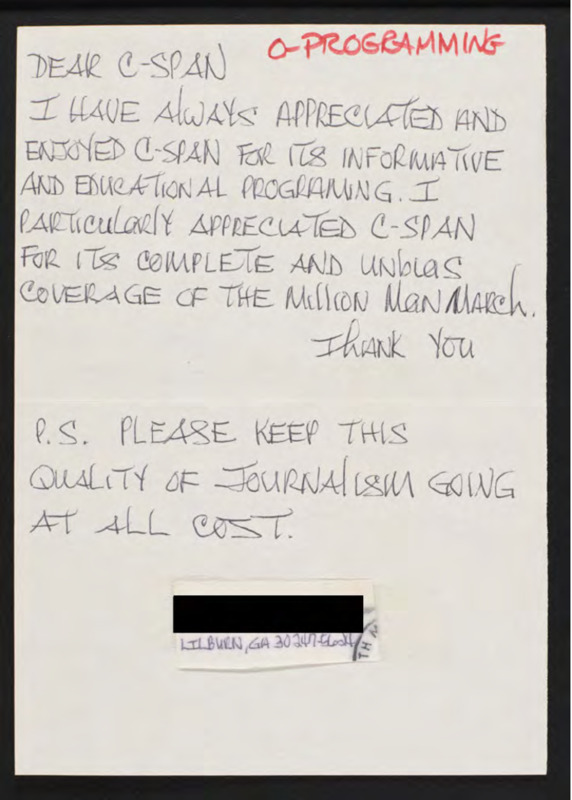 O-PROGRAMMING
DEAR C-SPAN
I HAVE AlWAYS APPRECIATED AND
ENJOYED C-SPAN FOR ITS INFORMATIVE
AND EDUCATIONAL PROGRAMING. I
PARTICULARlY APPRECIATED C-SPAN
FOR ITS COMPLETE AND UNbIAS
COVERAGE OF THE MIllION MaN MARCh.
ThANK YOU
P.S. PLEASE KEEP THIS
QUALITY OF JOURNAlISM GOING
AT ALL COST.
LILBURN, GA
TH